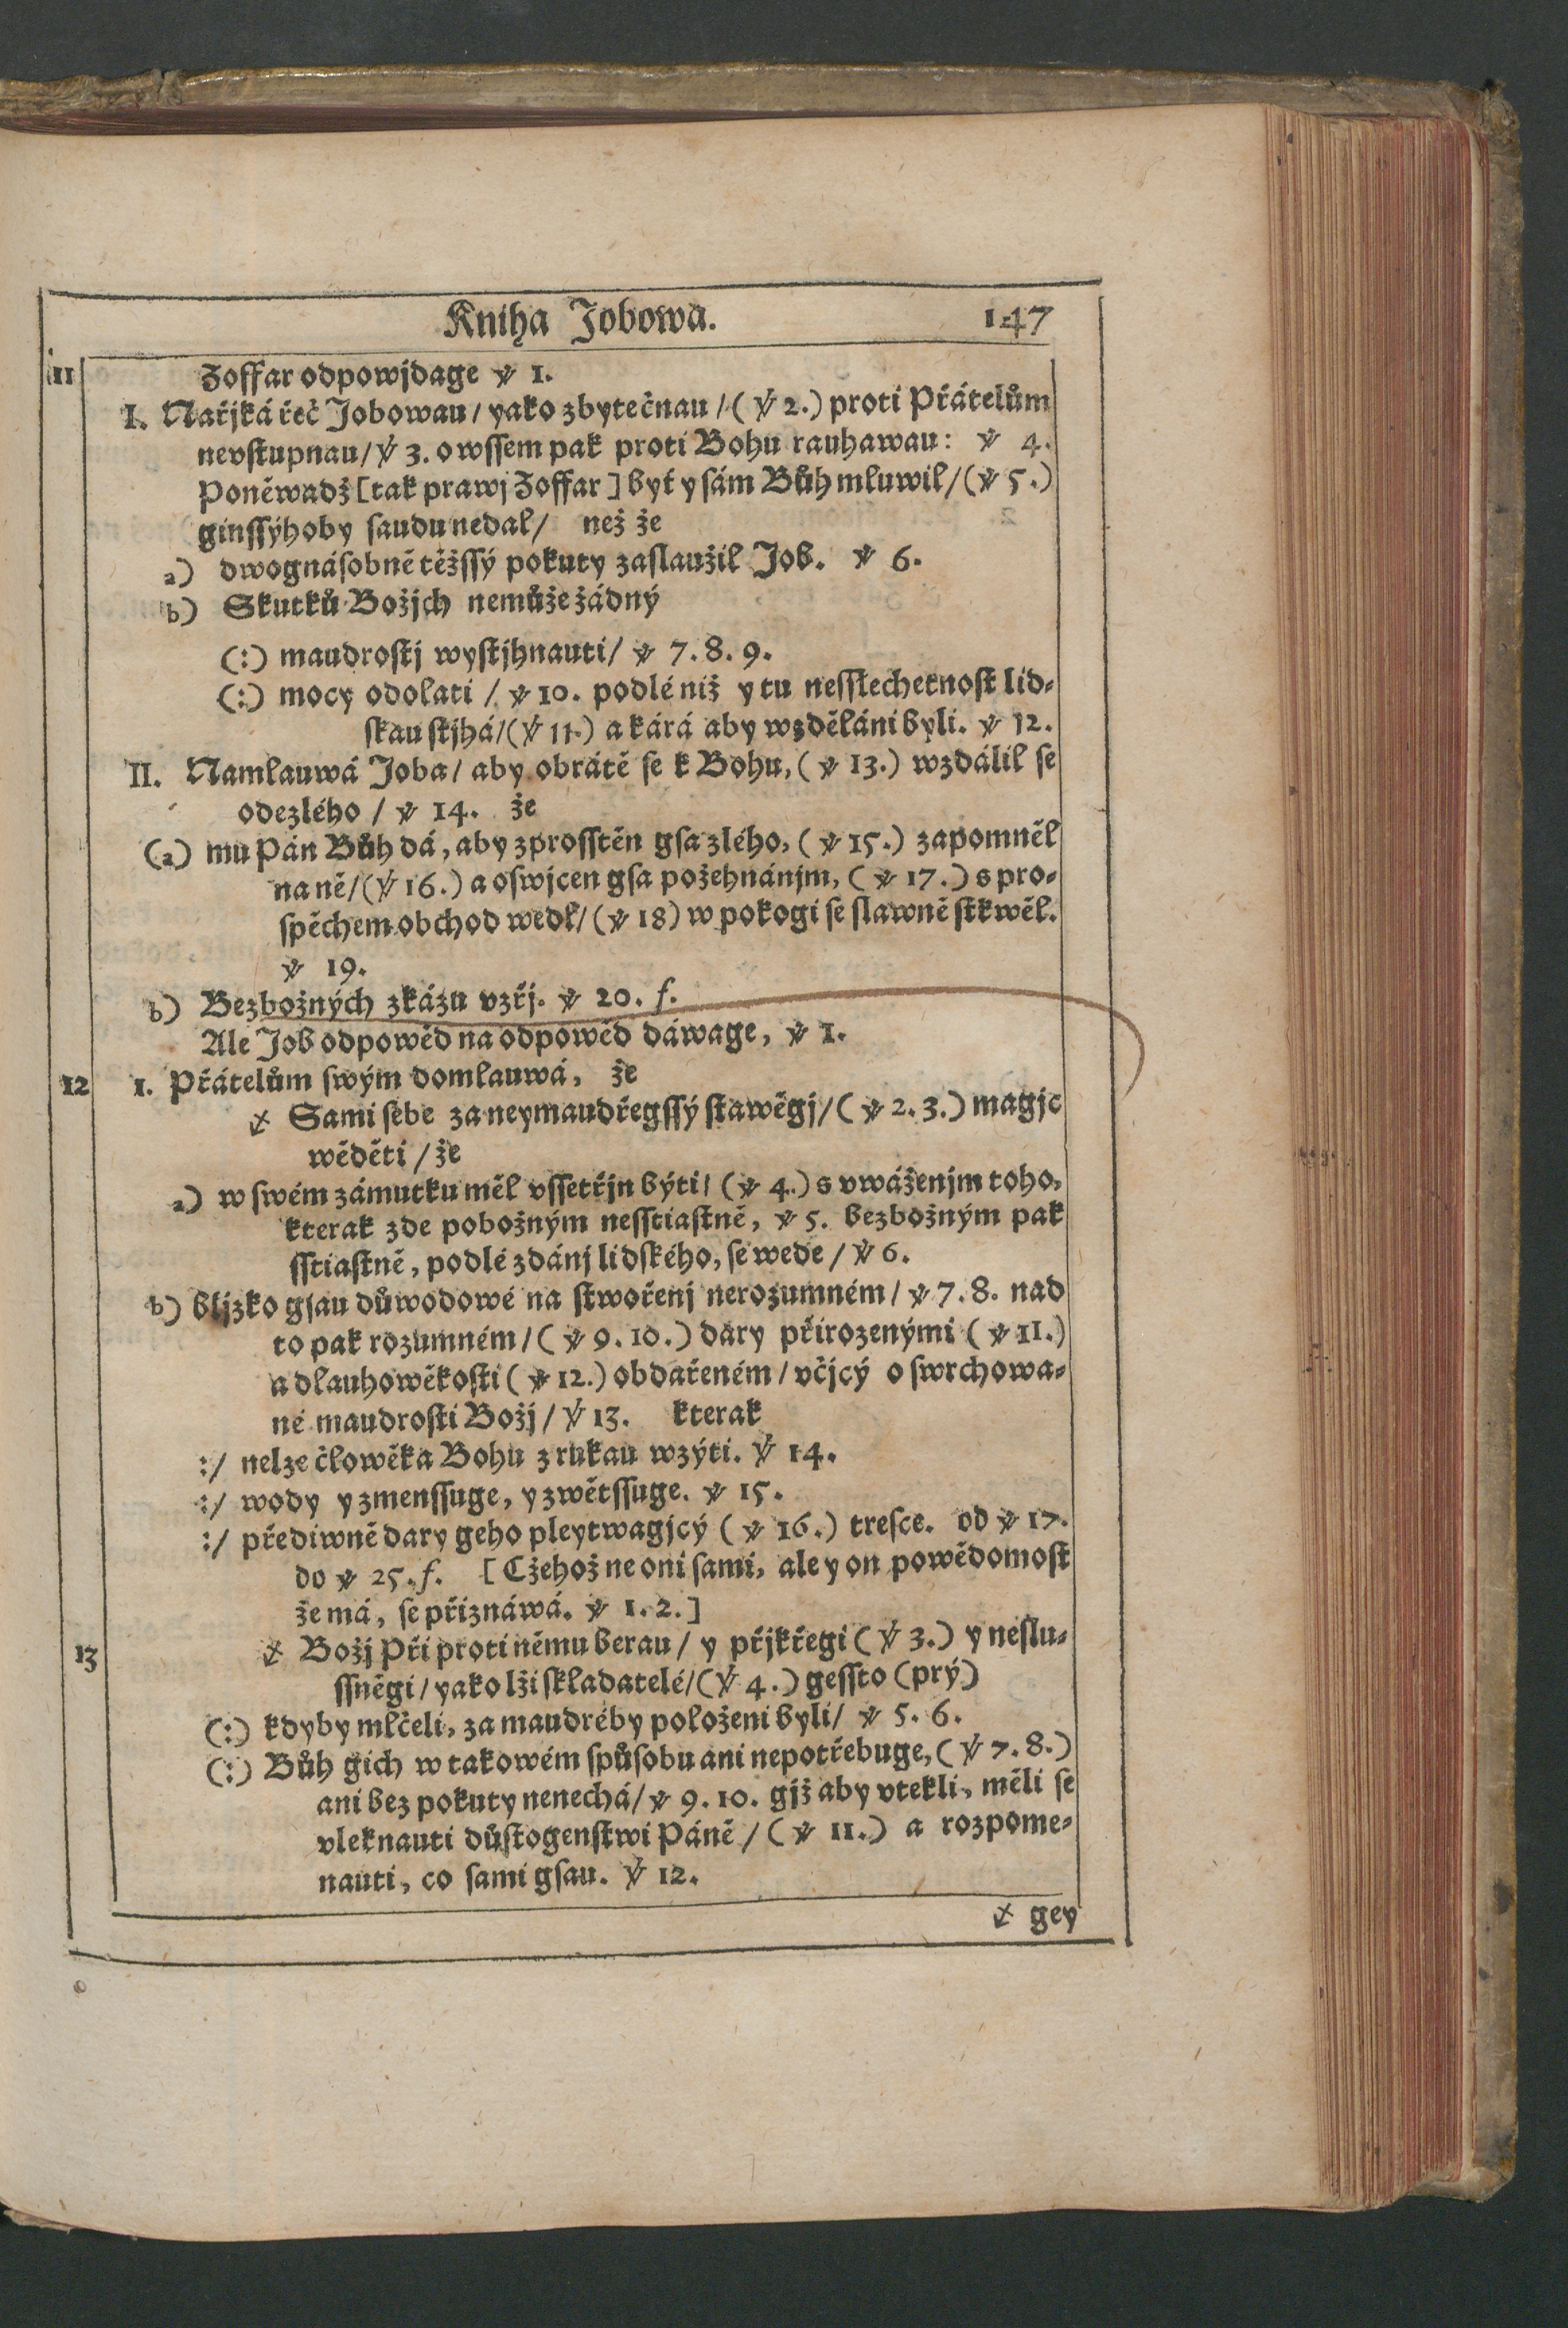 Kniha Jobowa. 147
11 Zoffar odpowjdage ℣ 1.
I. Nařjká řeč Jobowau / yako zbytečnau / (℣ 2.) proti Přátelům
nevſtupnau / ℣ 3. owſſem pak proti Bohu rauhawau: ℣ 4.
Poněwadž [tak prawj Zoffar] byť y ſám Bůh mluwil / (℣ 5.)
ginſſýhoby ſaudu nedal / než že
a) dwognáſobně těžſſý pokuty zaſlaužil Job. ℣ 6.
b) Skutků Božjch nemůže žádný
(:) maudroſtj wyſtjhnauti / ℣ 7. 8. 9.
(:) mocy odolati / ℣ 10. podlé niž y tu neſſlechetnoſt lid⸗
ſkau ſtjhá / (℣ 11.) a kárá aby wzděláni byli. ℣ 12.
II. Namlauwá Joba / aby obrátě ſe k Bohu, (℣ 13.) wzdálil ſe
odezlého / ℣ 14. že
(a) mu Pán Bůh dá, aby zproſſtěn gſa zlého, (℣ 15.) zapomněl
na ně / (℣ 16.) a oſwjcen gſa požehnánjm, (℣ 17.) s pro⸗
ſpěchem obchod wedl / (℣ 18) w pokogi ſe ſlawně ſtkwěl.
℣ 19.
b) Bezbožných zkázu vzřj. ℣ 20. f.
Ale Job odpowěd na odpowěd dáwage, ℣ 1.
12 1. Přátelům ſwým domlauwá, že
☓ Sami ſebe za neymaudřegſſý ſtawěgj / (℣ 2. 3.) magjc
wěděti / že
a) w ſwém zámutku měl vſſetřjn býti / (℣ 4.) s vwáženjm toho,
kterak zde pobožným neſſtiaſtně, ℣ 5. bezbožným pak
ſſtiaſtně, podlé zdánj lidſkého, ſe wede / ℣ 6.
b) bljzko gſau důwodowé na ſtwořenj nerozumném / ℣ 7. 8. nad
to pak rozumném / (℣ 9. 10.) dary přirozenými (℣ 11.)
a dlauhowěkoſti (℣ 12.) obdařeném / včjcý o ſwrchowa⸗
né maudroſti Božj / ℣ 13. kterak
:/ nelze člowěka Bohu z rukau wzýti. ℣ 14.
:/ wody y zmenſſuge, y zwětſſuge. ℣ 15.
:/ přediwně dary geho pleytwagjcý (℣ 16.) treſce. od ℣ 17.
do ℣ 25. f. [Cžehož ne oni ſami, ale y on powědomoſt
že má, ſe přiznáwá. ℣ 1. 2.]
13 ☓ Božj Při proti němu berau / y přjkřegi (℣ 3.) y neſlu⸗
ſſněgi / yako lži ſkladatelé / (℣ 4.) geſſto (prý)
(:) kdyby mlčeli, za maudréby položeni byli / ℣ 5. 6.
(:) Bůh gich w takowém ſpůſobu ani nepotřebuge, (℣ 7. 8.)
ani bez pokuty nenechá / ℣ 9. 10. gjž aby vtekli, měli ſe
vleknauti důſtogenſtwi Páně / (℣ 11.) a rozpome⸗
nauti, co ſami gſau. ℣ 12.
☓ gey